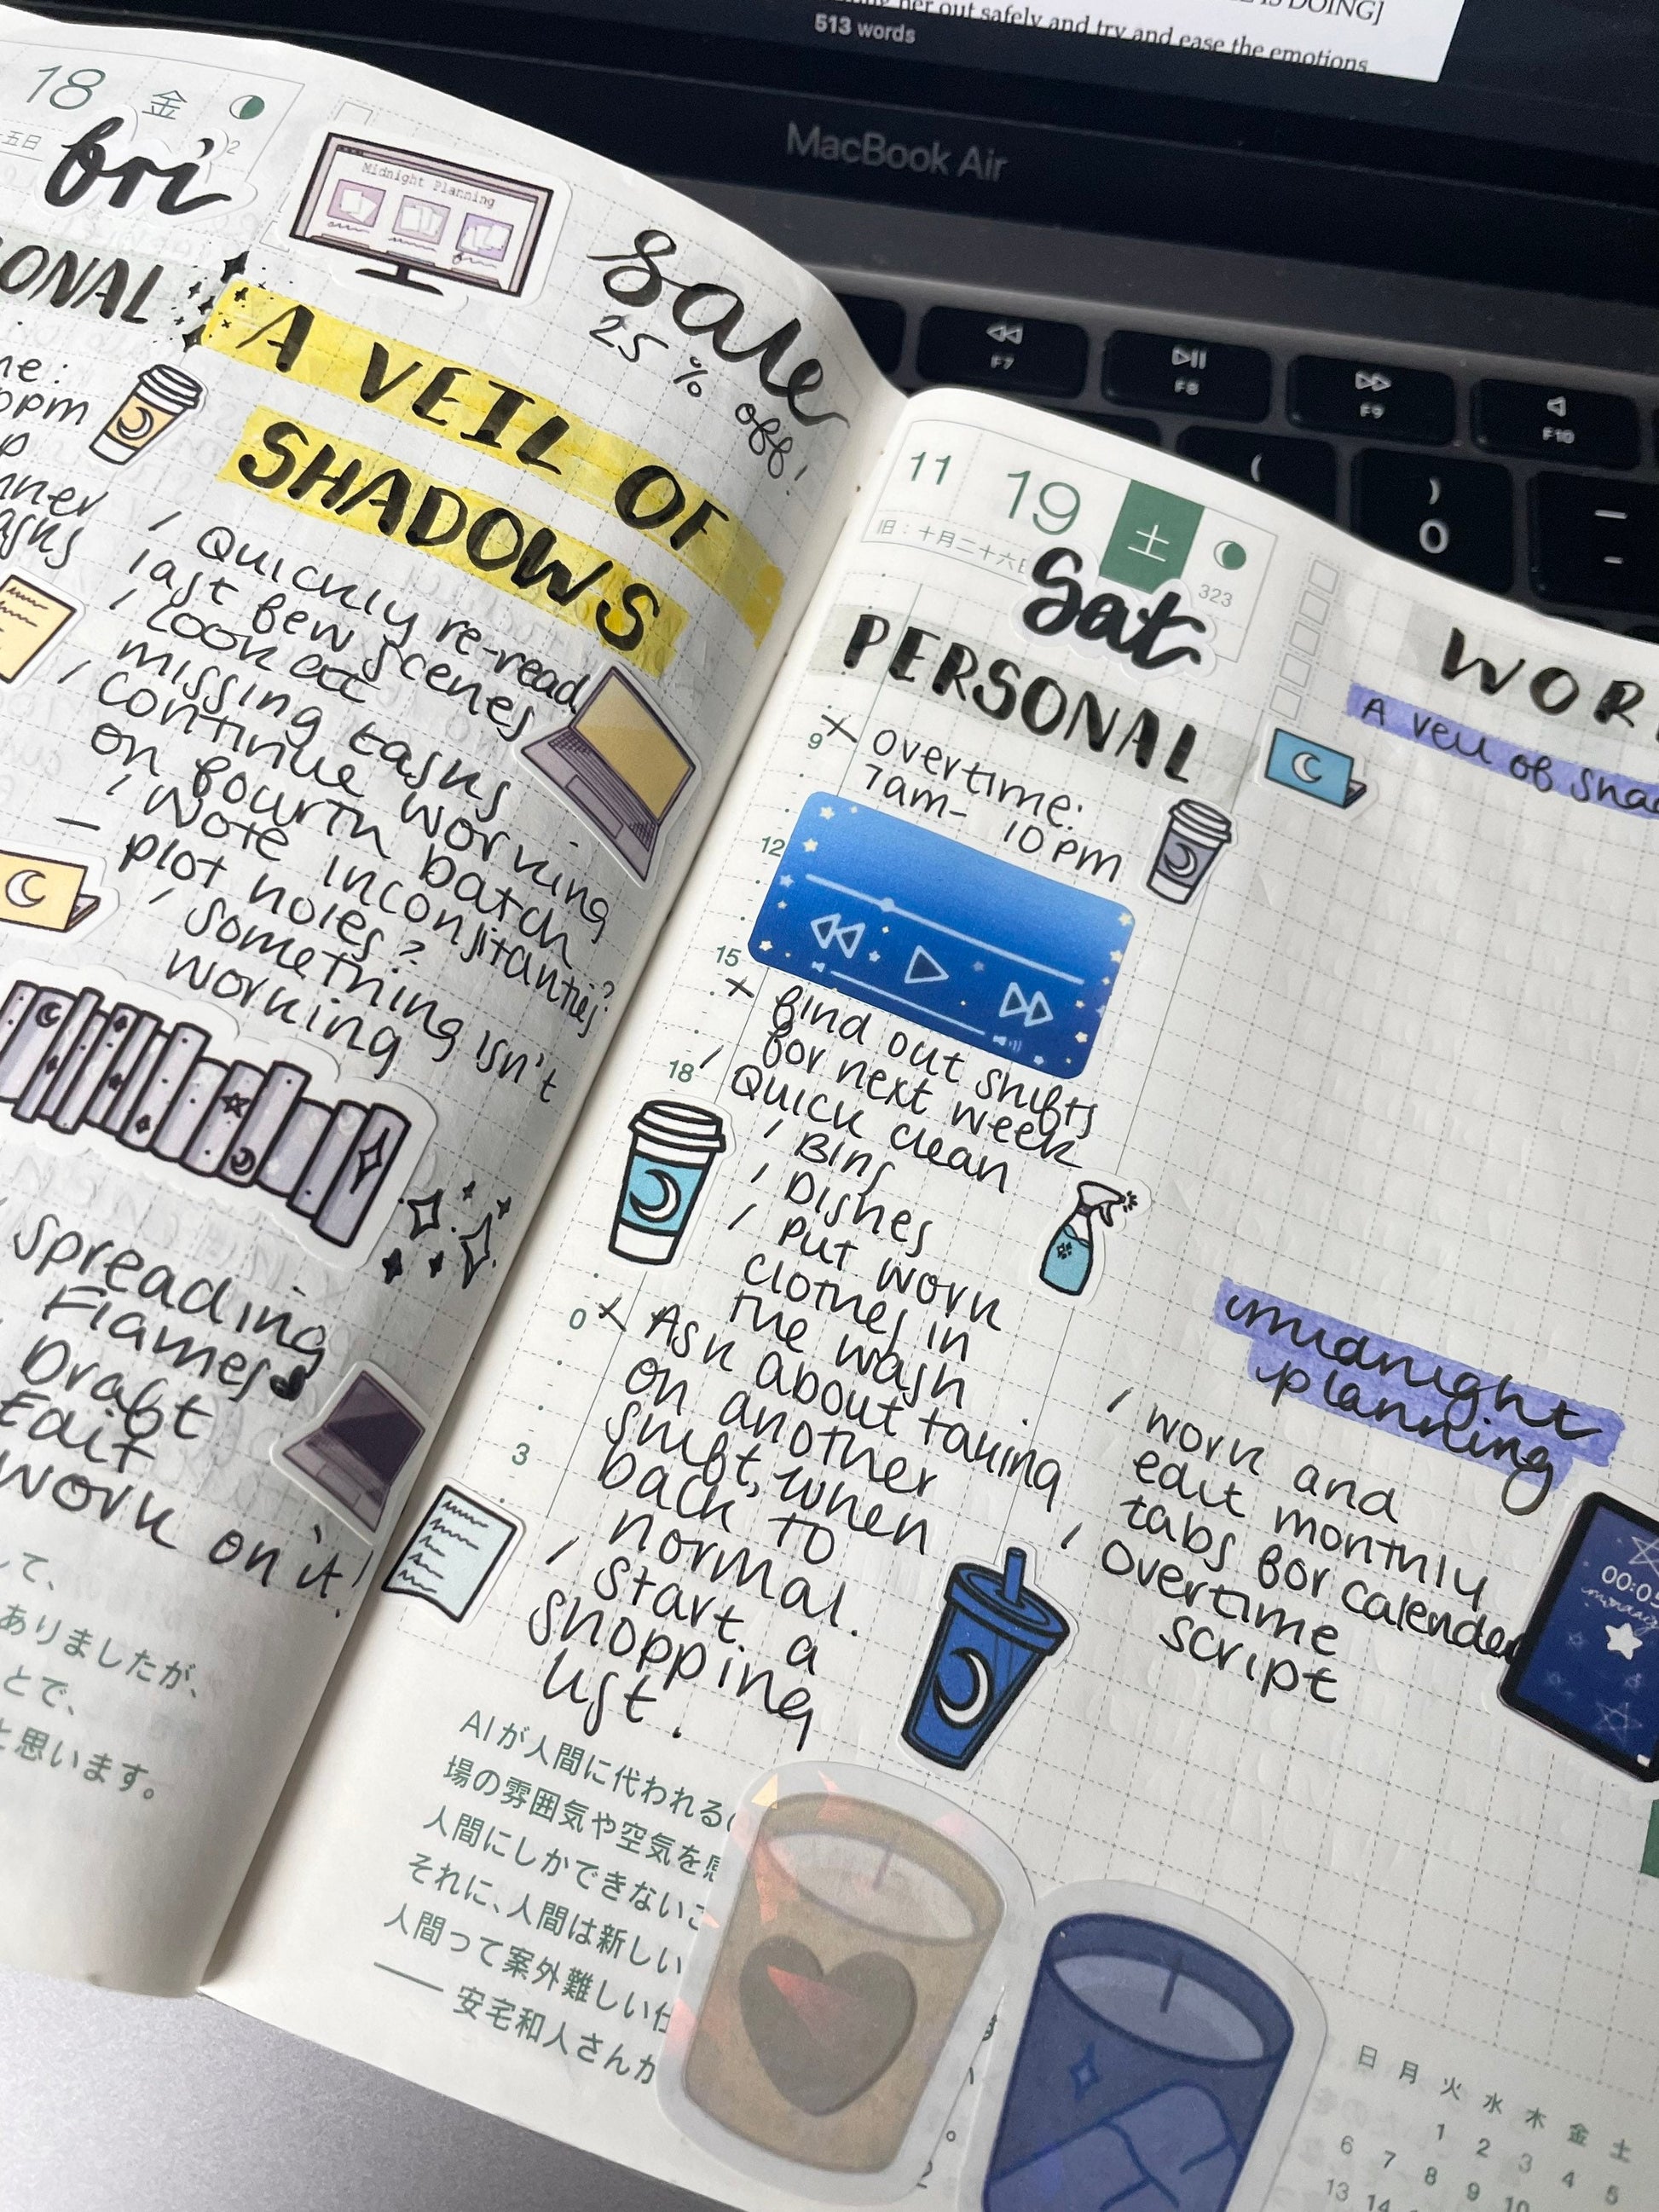 E IS DOING]
her out safely and try and ease the emotions
513 words
MacBook Air
F7
F8
F9
F10
(
)
0
—
-
18 金
五日
fri
2
Midnight Planning
sale
25 % off!
ONAL
ne:
pm
p
nner
asks
A VEIL OF
SHADOWS
/ Quickly re-read
last few scenes
/ look at
missing tasks
/ continue working
on fourth batch
/ Note inconsitanties?
— plot holes?
/ something isn't
working
spreading
Flames
Draft
Edit
work on it!
して、
ありましたが、
とで、
と思います。
11 19 土
旧：十月二十六日
323
Sat
PERSONAL
9
× overtime:
7am- 10pm
12
15
× find out shifts
for next week
18
/ Quick clean
/ Bins
/ Dishes
/ Put work
clothes in
the wash
0
× Ask about taking
on another
shift, when
back to
normal.
3
/ start a
shopping
list.
AIが人間に代われる
場の雰囲気や空気を感
人間にしかできないこ
それに、人間は新しい
人間って案外難しい仕
—— 安宅和人さんが
WOR
A veil of Sha
midnight
planning
/ work and
edit monthly
tabs for calender
/ overtime
script
00:0
日 月 火 水 木 金 土
1 2 3 4 5
6 7 8 9 10
13 14